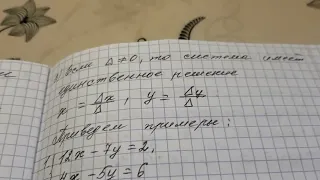 Если Δ≠0, то система имеет
единственное решение
x = Δx/Δ, y = Δy/Δ
Приведем примеры:
12x - 7y = 2,
4x - 5y = 6